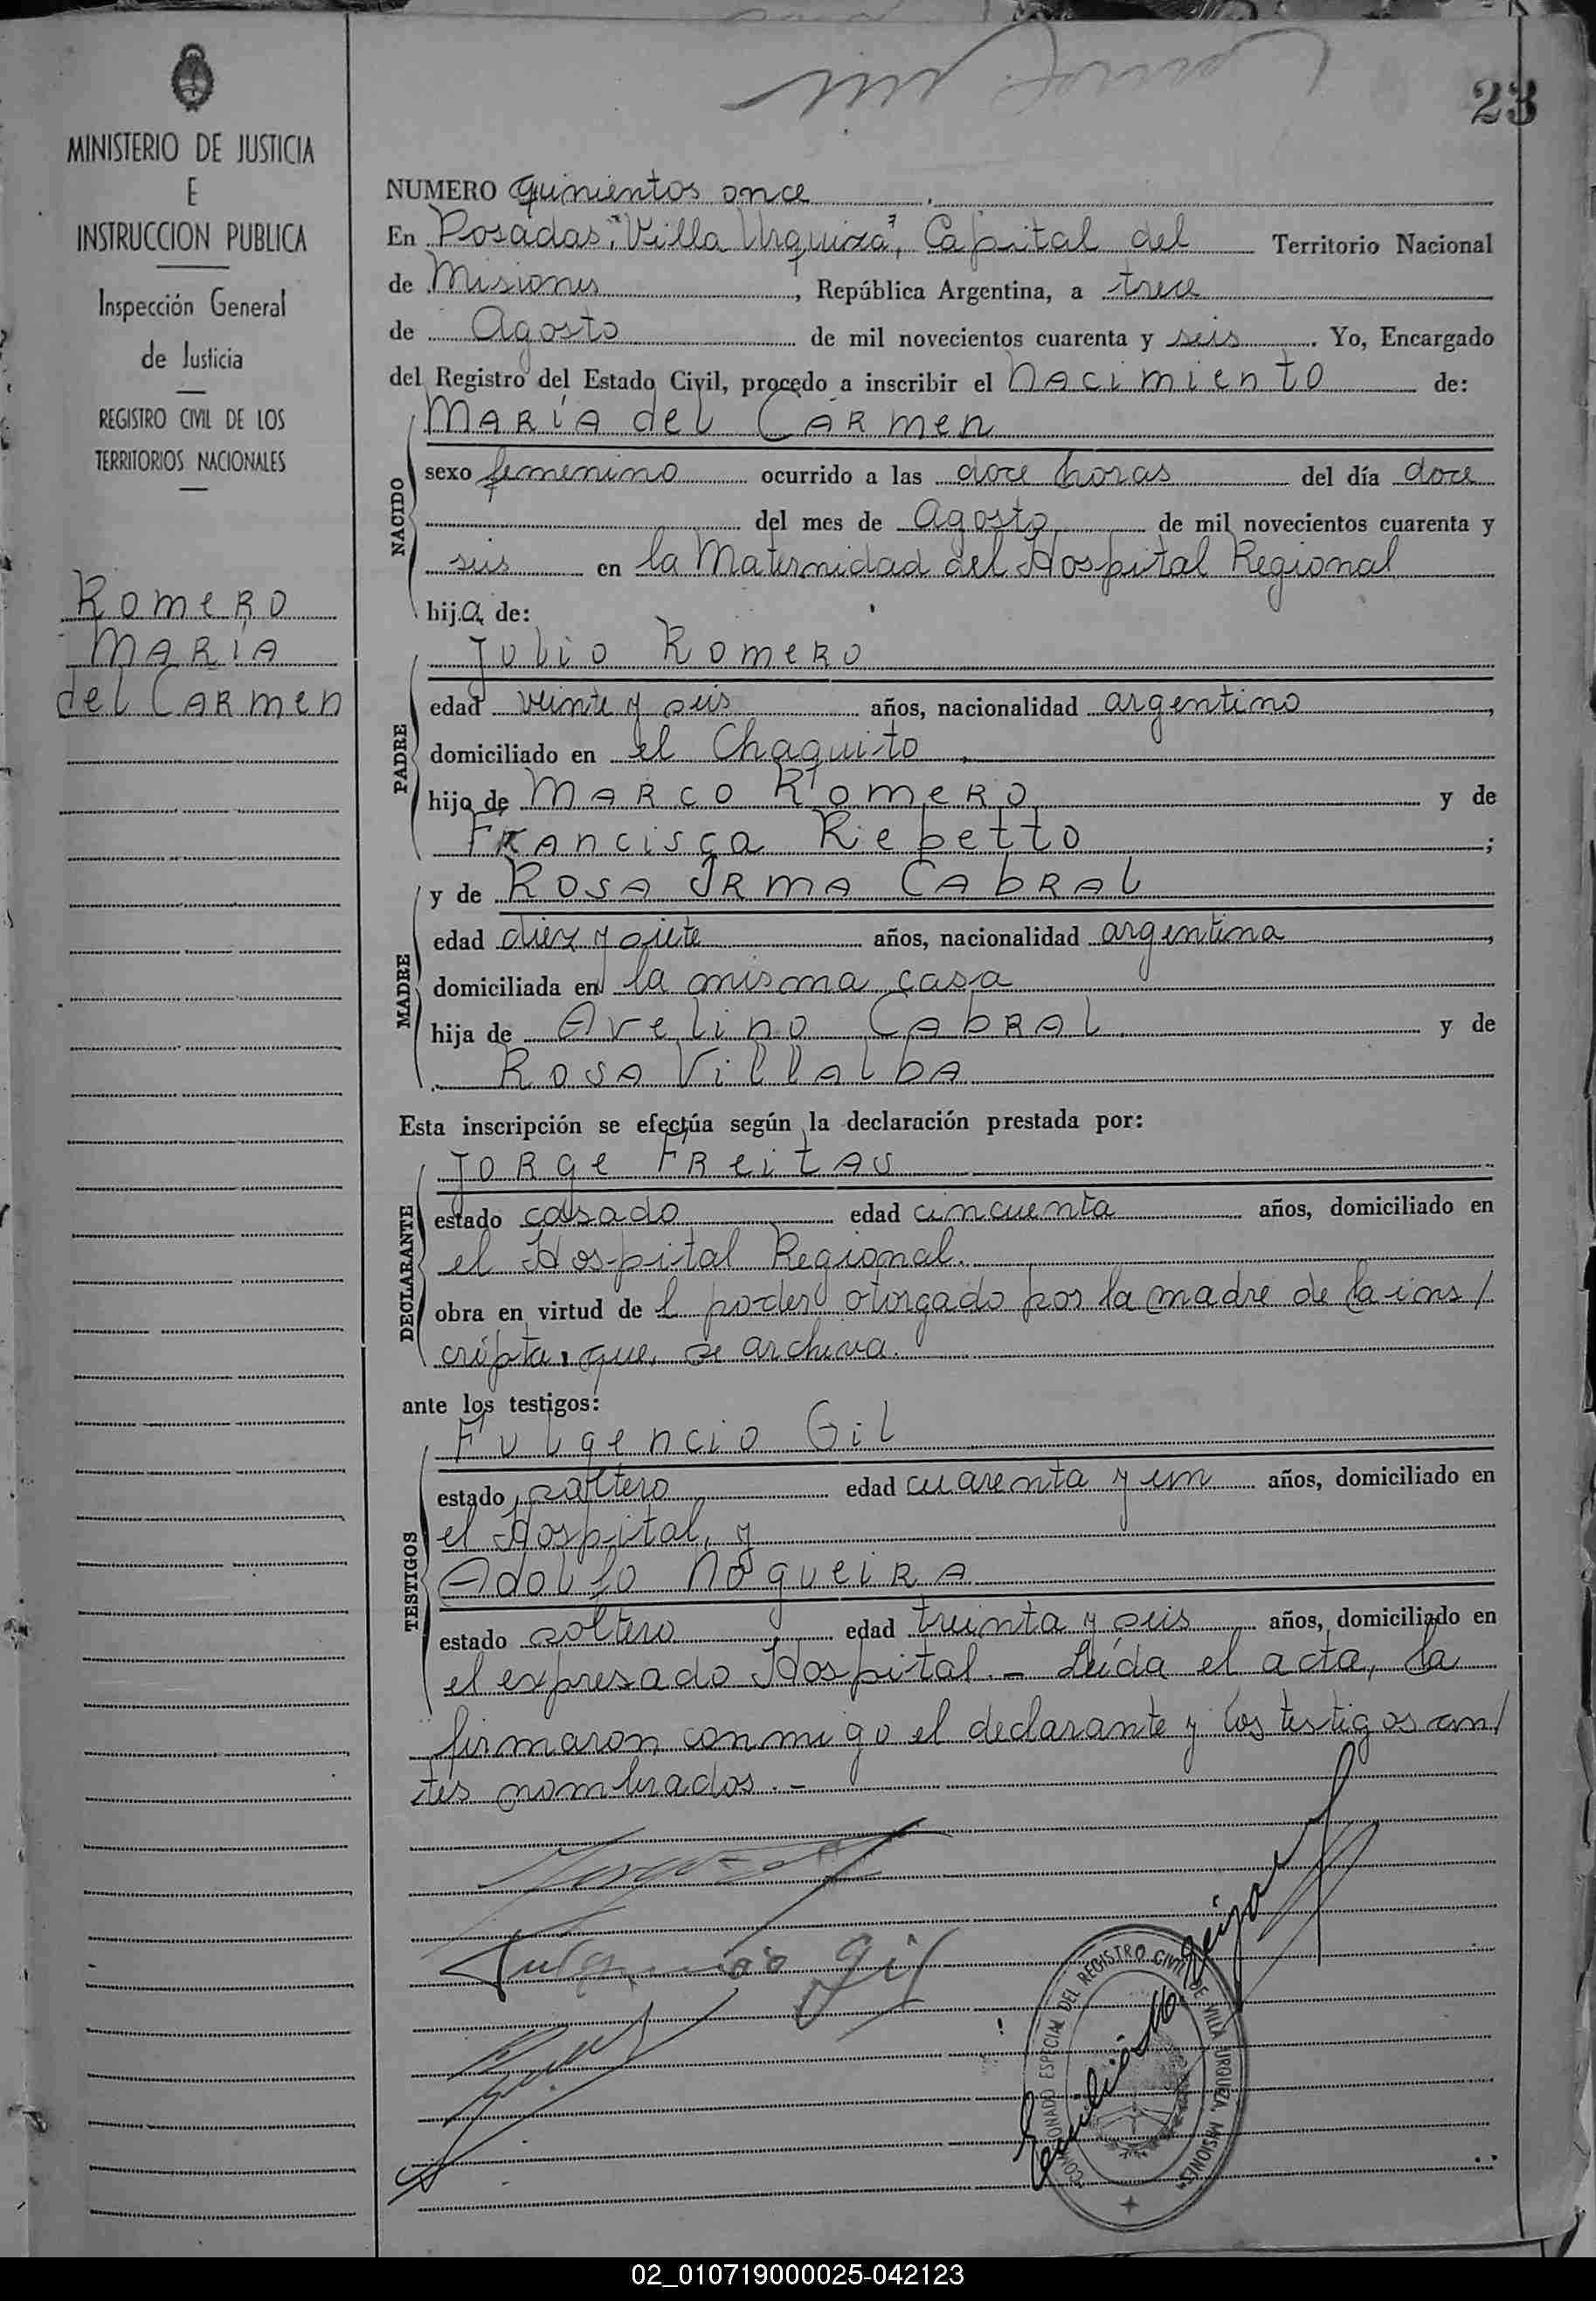 23
MINISTERIO DE JUSTICIA
E
INSTRUCCION PUBLICA
Inspección General
de Justicia
REGISTRO CIVIL DE LOS
TERRITORIOS NACIONALES
Romero
María
del Carmen
NUMERO quinientos once
En Posadas, "Villa Urquiza", Capital del Territorio Nacional
de Misiones, República Argentina, a trece
de Agosto de mil novecientos cuarenta y seis. Yo, Encargado
del Registro del Estado Civil, procedo a inscribir el nacimiento de:
María del Carmen
NACIDO
sexo femenino ocurrido a las doce horas del día doce
del mes de Agosto de mil novecientos cuarenta y
seis en la Maternidad del Hospital Regional
hija de:
Julio Romero
PADRE
edad veinte y seis años, nacionalidad argentino,
domiciliado en el Chaquito.
hijo de Marco Romero y de
Francisca Riebetto;
y de Rosa Irma Cabral
MADRE
edad diez y siete años, nacionalidad argentina,
domiciliada en la misma casa
hija de Avelino Cabral y de
Rosa Villalba
Esta inscripción se efectúa según la declaración prestada por:
Jorge Freitas
DECLARANTE
estado casado edad cincuenta años, domiciliado en
el Hospital Regional.
obra en virtud de l poder otorgado por la madre de la ins/
cripta, que, se archiva.
ante los testigos:
Fulgencio Gil
TESTIGOS
estado soltero edad cuarenta y un años, domiciliado en
el Hospital, y
Adolfo Nogueira
estado soltero edad treinta y seis años, domiciliado en
el expresado Hospital. - Leída el acta, la
firmaron conmigo el declarante y los testigos an/
tes nombrados. -
Fulgencio Gil
DEL REGISTRO CIVIL DE VILLA URQUIZA, MISIONES
02_010719000025-042123